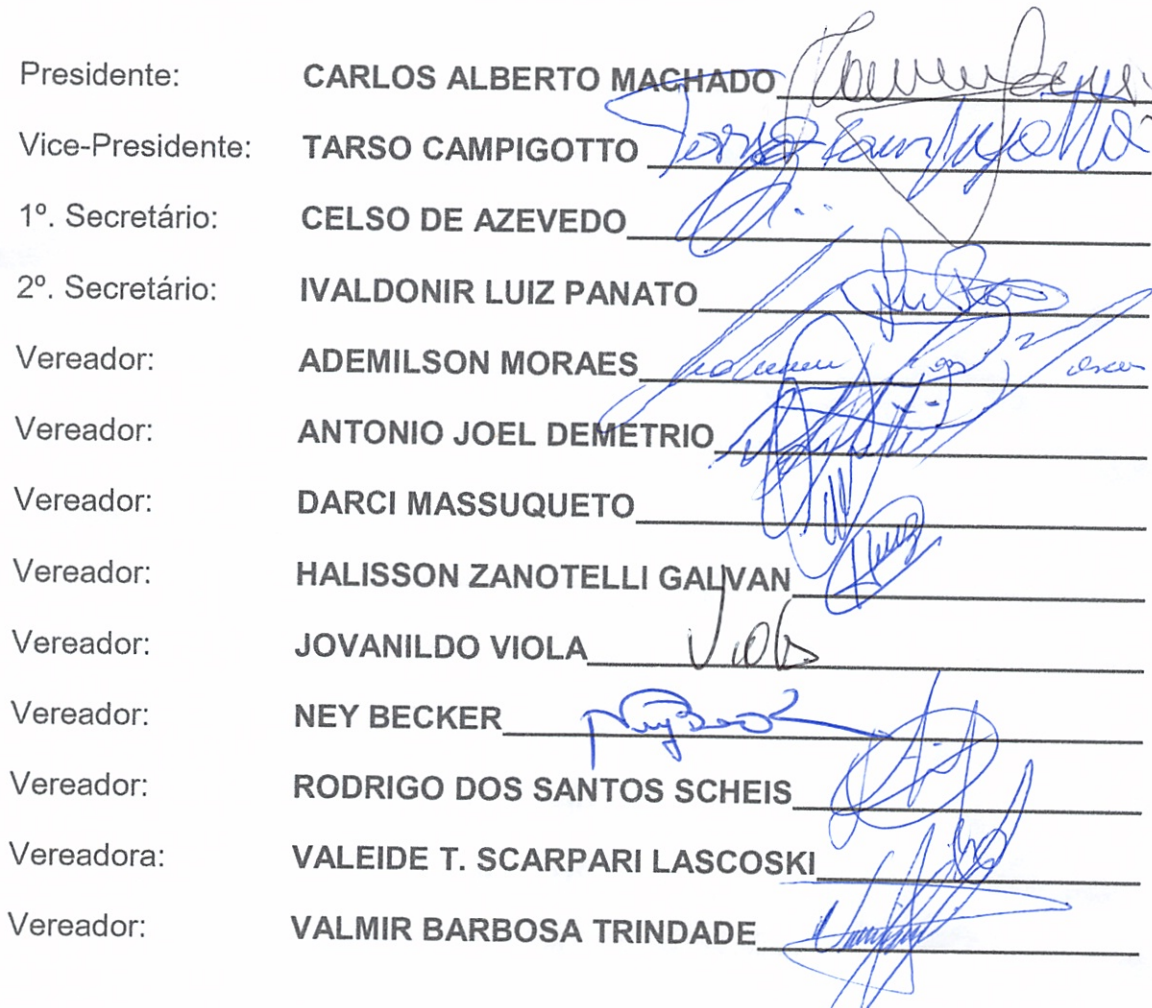 Presidente: CARLOS ALBERTO MACHADO
Vice-Presidente: TARSO CAMPIGOTTO
1º. Secretário: CELSO DE AZEVEDO
2º. Secretário: IVALDONIR LUIZ PANATO
Vereador: ADEMILSON MORAES
Vereador: ANTONIO JOEL DEMETRIO
Vereador: DARCI MASSUQUETO
Vereador: HALISSON ZANOTELLI GALVAN
Vereador: JOVANILDO VIOLA Viola
Vereador: NEY BECKER
Vereador: RODRIGO DOS SANTOS SCHEIS
Vereadora: VALEIDE T. SCARPARI LASCOSKI
Vereador: VALMIR BARBOSA TRINDADE